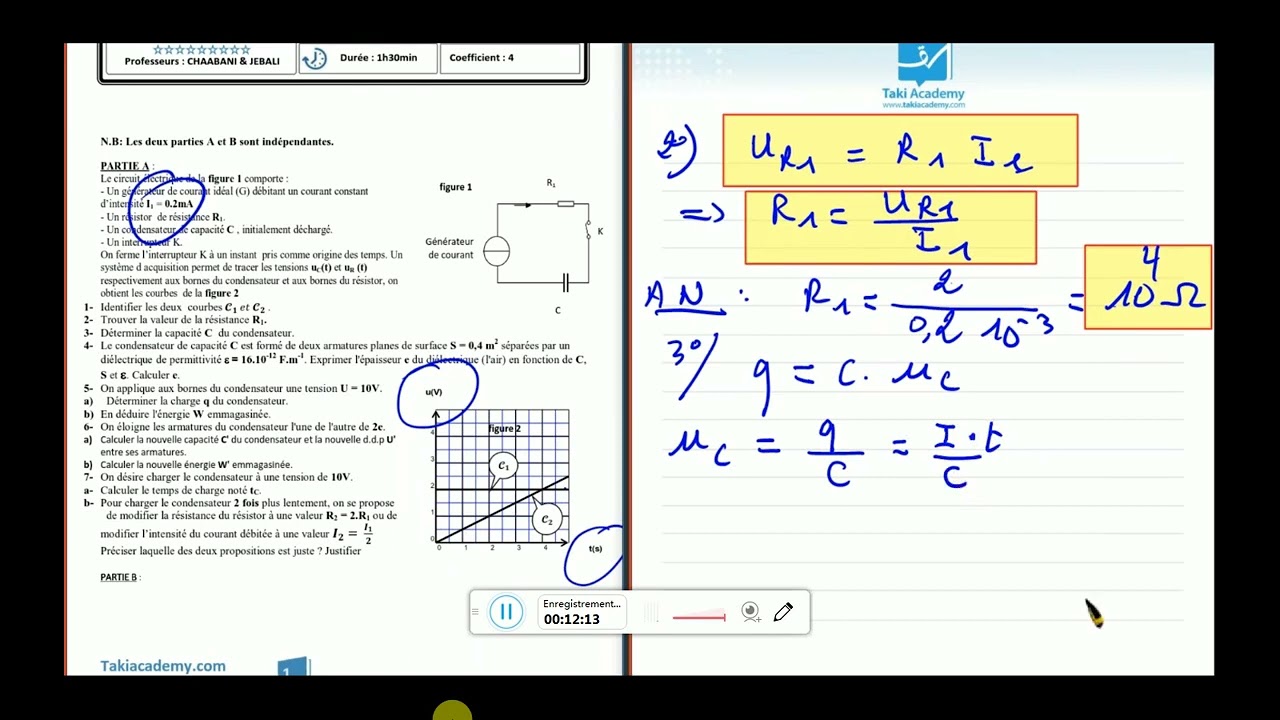 ☆☆☆☆☆☆☆☆☆
Professeurs : CHAABANI & JEBALI
Durée : 1h30min
Coefficient : 4
N.B: Les deux parties A et B sont indépendantes.
PARTIE A :
Le circuit électrique de la figure 1 comporte :
- Un générateur de courant idéal (G) débitant un courant constant
d'intensité I₁ = 0.2mA
- Un résistor de résistance R₁.
- Un condensateur de capacité C , initialement déchargé.
- Un interrupteur K.
On ferme l'interrupteur K à un instant pris comme origine des temps. Un
système d acquisition permet de tracer les tensions uC(t) et uR (t)
respectivement aux bornes du condensateur et aux bornes du résistor, on
obtient les courbes de la figure 2
1- Identifier les deux courbes C₁ et C₂ .
2- Trouver la valeur de la résistance R₁.
3- Déterminer la capacité C du condensateur.
4- Le condensateur de capacité C est formé de deux armatures planes de surface S = 0,4 m² séparées par un
diélectrique de permittivité ε = 16.10⁻¹² F.m⁻¹. Exprimer l'épaisseur e du diélectrique (l'air) en fonction de C,
S et ε. Calculer e.
5- On applique aux bornes du condensateur une tension U = 10V.
a) Déterminer la charge q du condensateur.
b) En déduire l'énergie W emmagasinée.
6- On éloigne les armatures du condensateur l'une de l'autre de 2e.
a) Calculer la nouvelle capacité C' du condensateur et la nouvelle d.d.p U'
entre ses armatures.
b) Calculer la nouvelle énergie W' emmagasinée.
7- On désire charger le condensateur à une tension de 10V.
a- Calculer le temps de charge noté tC.
b- Pour charger le condensateur 2 fois plus lentement, on se propose
de modifier la résistance du résistor à une valeur R₂ = 2.R₁ ou de
modifier l'intensité du courant débitée à une valeur I₂ = I₁/2
Préciser laquelle des deux propositions est juste ? Justifier
PARTIE B :
Takiacademy.com
1
figure 1
R₁
K
Générateur
de courant
C
u(V)
figure 2
4
3
C₁
2
1
C₂
0
0 1 2 3 4
t(s)
Taki Academy
www.takiacademy.com
2°) UR1 = R1 I1
=> R1 = UR1/I1
AN : R1 = 2/(0,2 10⁻³) = 10⁴ Ω
3°/ q = C. uC
uC = q/C = I.t/C
Enregistrement...
00:12:13